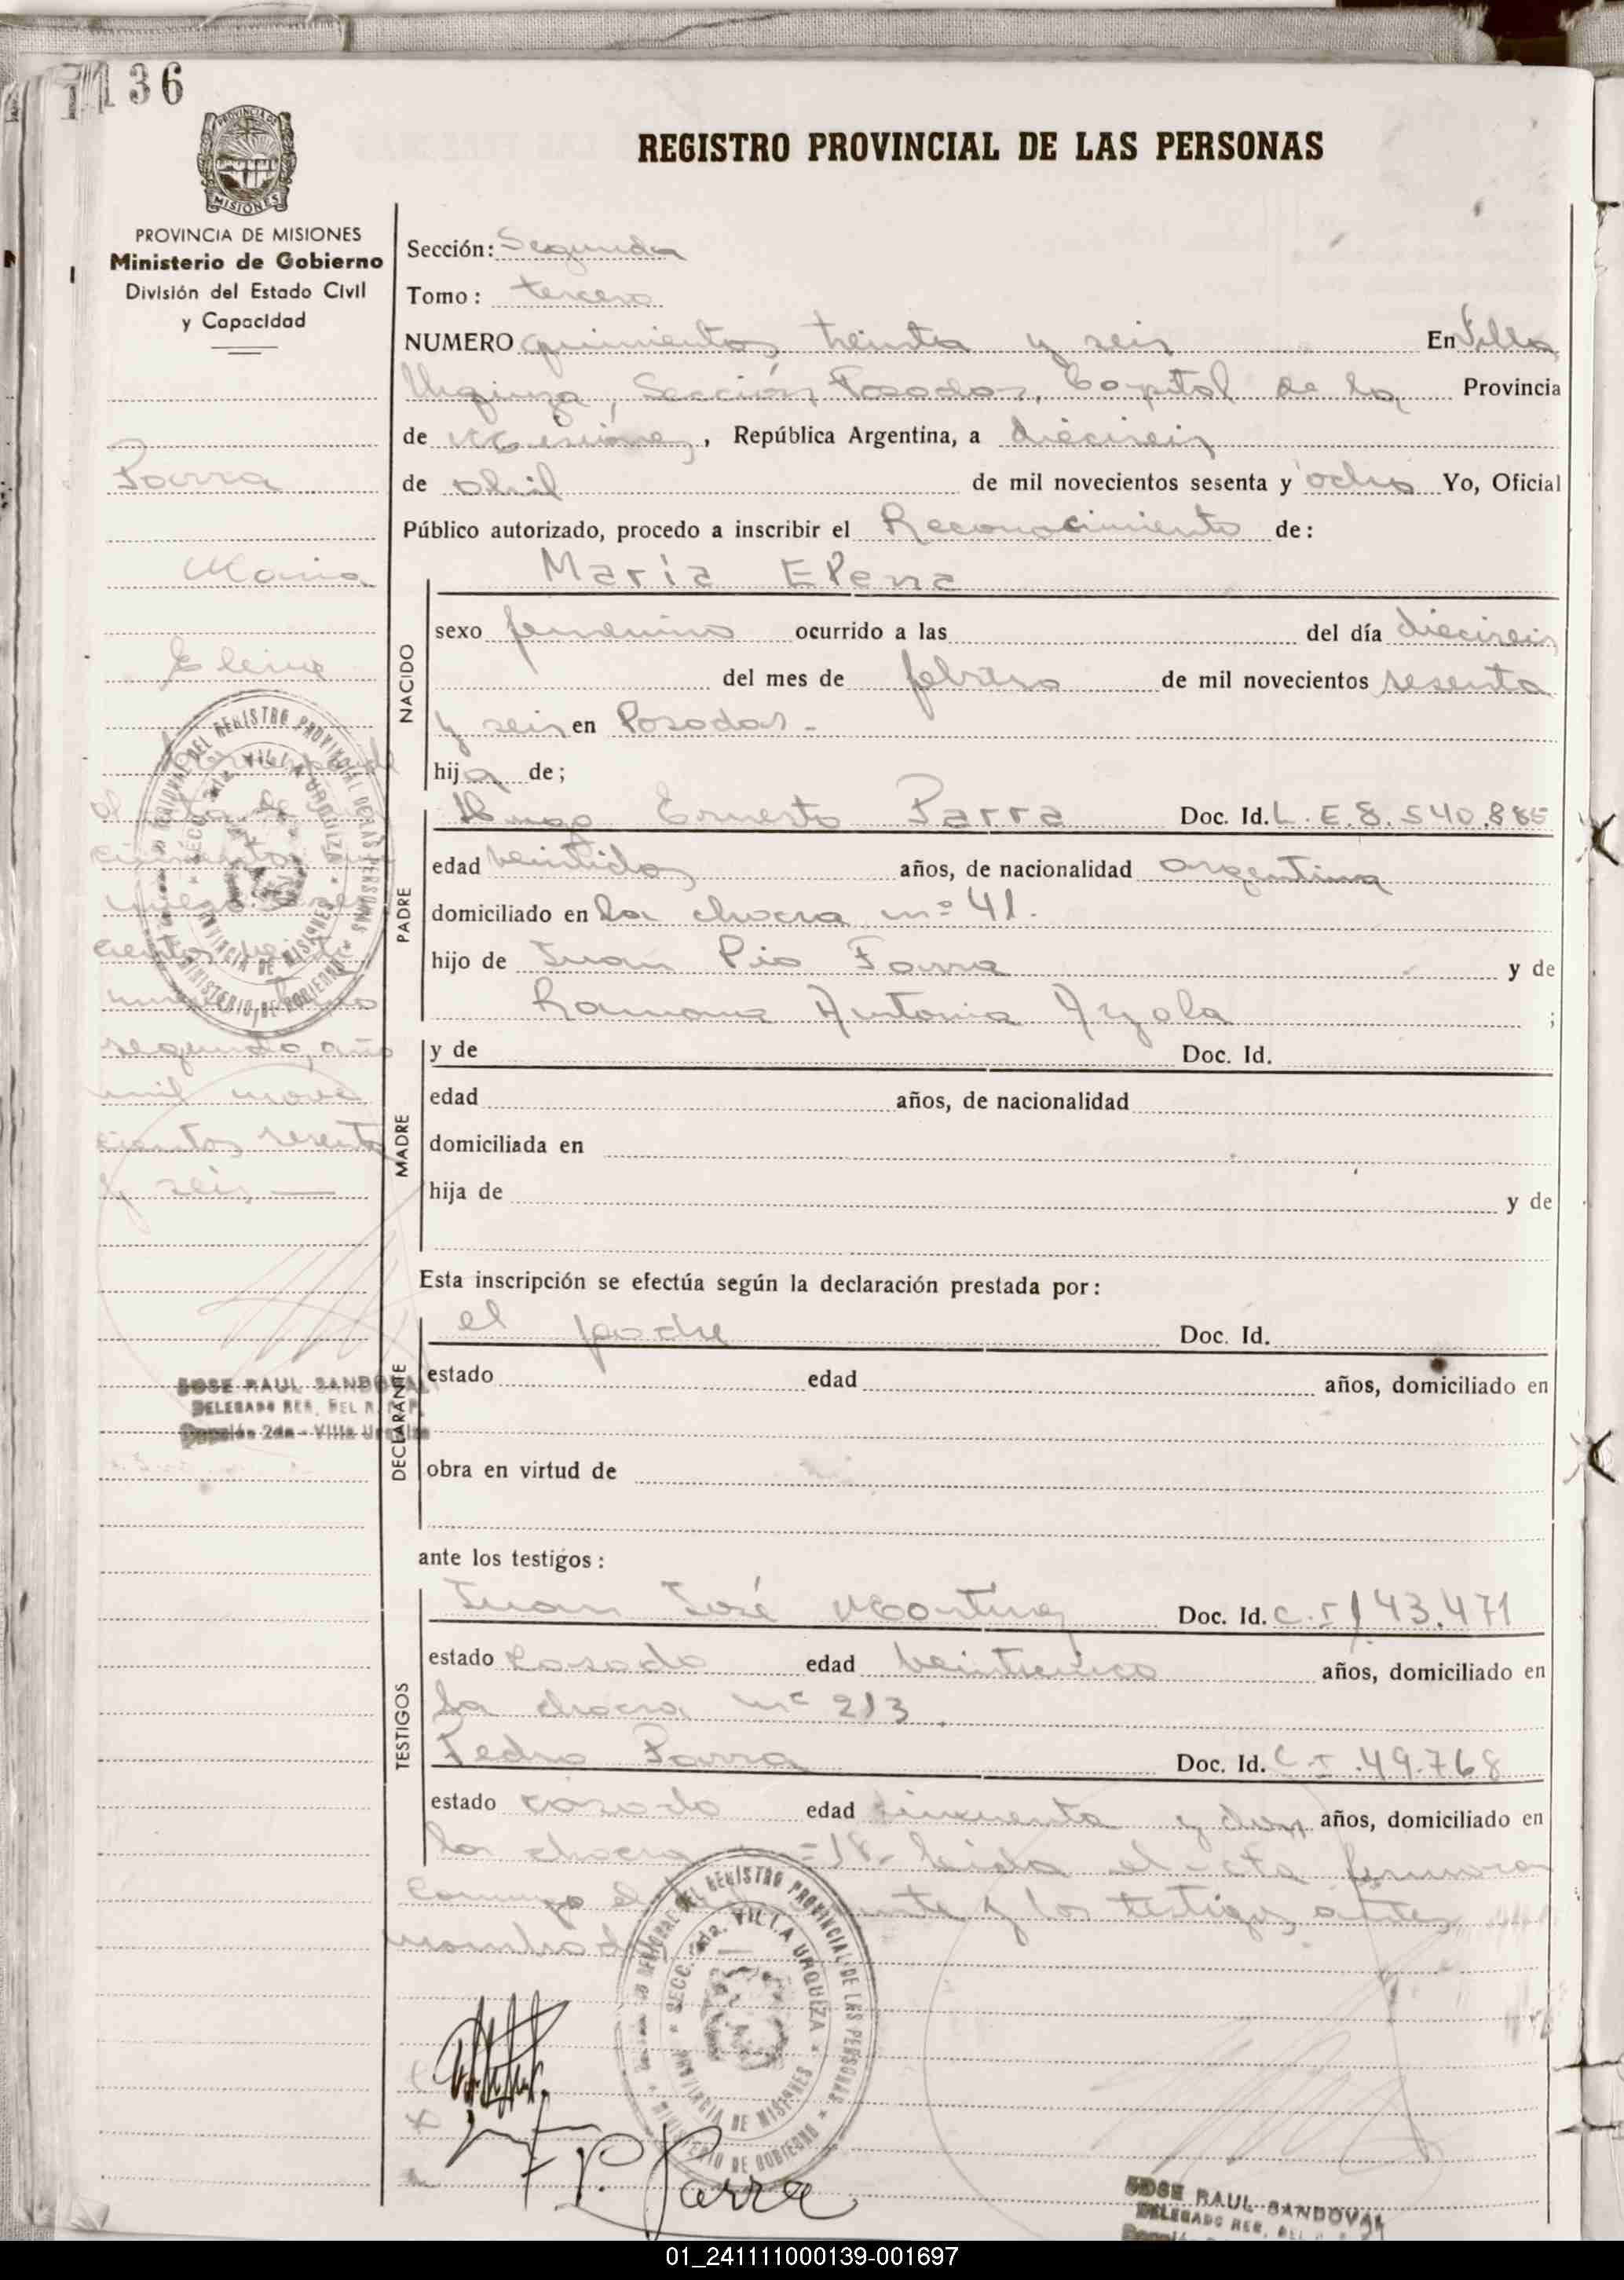 136
REGISTRO PROVINCIAL DE LAS PERSONAS
PROVINCIA DE MISIONES
MISIONES
PROVINCIA DE MISIONES
Ministerio de Gobierno
División del Estado Civil
y Capacidad
Sección: Segunda
Tomo: tercero
NUMERO quinientos treinta y seis En Villa
Urquiza, Sección Posadas, Capital de la Provincia
de Misiones, República Argentina, a dieciseis
de abril de mil novecientos sesenta y ocho Yo, Oficial
Público autorizado, procedo a inscribir el Reconocimiento de:
Parra
Maria
Elena
Corresponde
al acta de
segundo, año
mil nove
cientos sesenta
y seis
JOSE RAUL SANDOVAL
DELEGADO REG. DEL R. P. P.
Sección 2da - Villa Urquiza
NACIDO
María Elena
sexo femenino ocurrido a las del día dieciseis
del mes de febrero de mil novecientos sesenta
y seis en Posadas.-
hija de;
PADRE
Hugo Ernesto Parra Doc. Id. L.E. 8.540.885
edad veintidos años, de nacionalidad argentina
domiciliado en la chacra nº 41.
hijo de Juan Pio Parra y de
Ramona Antonia Ayala ;
MADRE
y de Doc. Id.
edad años, de nacionalidad
domiciliada en
hija de y de
Esta inscripción se efectúa según la declaración prestada por:
DECLARANTE
el padre Doc. Id.
estado edad años, domiciliado en
obra en virtud de
ante los testigos:
TESTIGOS
Juan José Martinez Doc. Id. C.I 143.471
estado casado edad veinticinco años, domiciliado en
la chacra nº 213.
Pedro Parra Doc. Id. C.I. 49.768
estado casado edad cincuenta y dos años, domiciliado en
la chacra 18- leida el acta firmaron
conmigo el y los testigos antes
nombrados
SECC. 2da. VILLA URQUIZA
PROVINCIA DE MISIONES
MINISTERIO DE GOBIERNO
P. Parra
JOSE RAUL SANDOVAL
DELEGADO REG. DEL
01_241111000139-001697